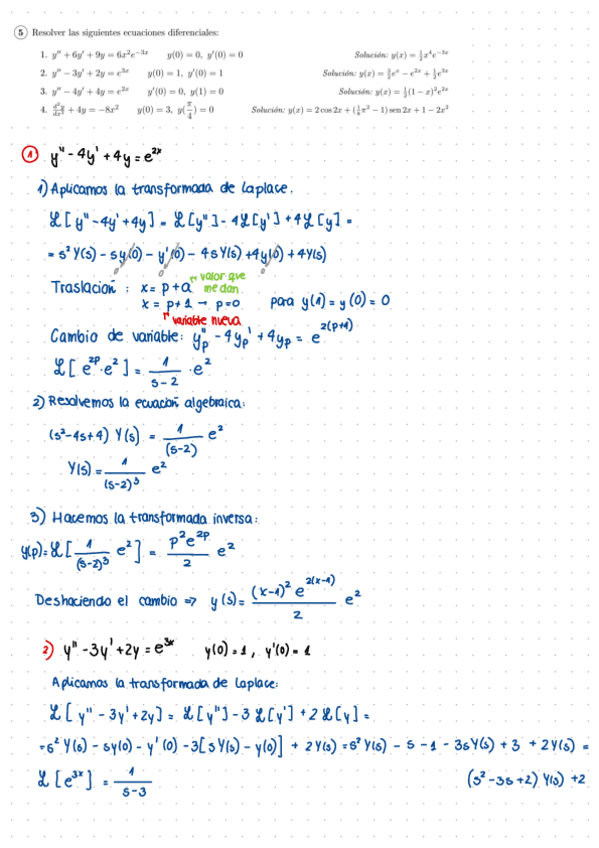 5 Resolver las siguientes ecuaciones diferenciales:
1. y'' + 6y' + 9y = 6x²e^{-3x} y(0) = 0, y'(0) = 0 Solución: y(x) = ½x⁴e^{-3x}
2. y'' − 3y' + 2y = e^{3x} y(0) = 1, y'(0) = 1 Solución: y(x) = 3/2 e^x − e^{2x} + ½e^{3x}
3. y'' − 4y' + 4y = e^{2x} y'(0) = 0, y(1) = 0 Solución: y(x) = ½(1 − x)²e^{2x}
4. d²y/dx² + 4y = −8x² y(0) = 3, y(π/4) = 0 Solución: y(x) = 2 cos 2x + (⅛π² − 1) sen 2x + 1 − 2x²
1 y'' - 4y' + 4y = e^{2x}
1) Aplicamos la transformada de laplace.
ℒ[y'' - 4y' + 4y] = ℒ[y''] - 4ℒ[y'] + 4ℒ[y] =
= s² Y(s) - sy(0) - y'(0) - 4sY(s) + 4y(0) + 4Y(s)
0 0 0
Traslación : x = p + a → valor que me dan.
x = p + 1 → p = 0 para y(1) = y(0) = 0
variable nueva
Cambio de variable: y''p - 4y'p + 4yp = e^{2(p+1)}
ℒ[e^{2p}·e²] = 1/(s-2) · e²
2) Resolvemos la ecuación algebraica:
(s² - 4s + 4) Y(s) = 1/(s-2) e²
Y(s) = 1/(s-2)³ e²
3) Hacemos la transformada inversa:
y(p) = ℒ[1/(s-2)³ e²] = p²e^{2p}/2 e²
Deshaciendo el cambio ⇒ y(s) = (x-1)² e^{2(x-1)}/2 e²
2) y'' - 3y' + 2y = e^{3x} y(0) = 1, y'(0) = 1
Aplicamos la transformada de laplace:
ℒ[y'' - 3y' + 2y] = ℒ[y''] - 3ℒ[y'] + 2ℒ[y] =
= s² Y(s) - sy(0) - y'(0) - 3[sY(s) - y(0)] + 2Y(s) = s² Y(s) - s - 1 - 3sY(s) + 3 + 2Y(s) =
ℒ[e^{3x}] = 1/(s-3) (s² - 3s + 2) Y(s) + 2